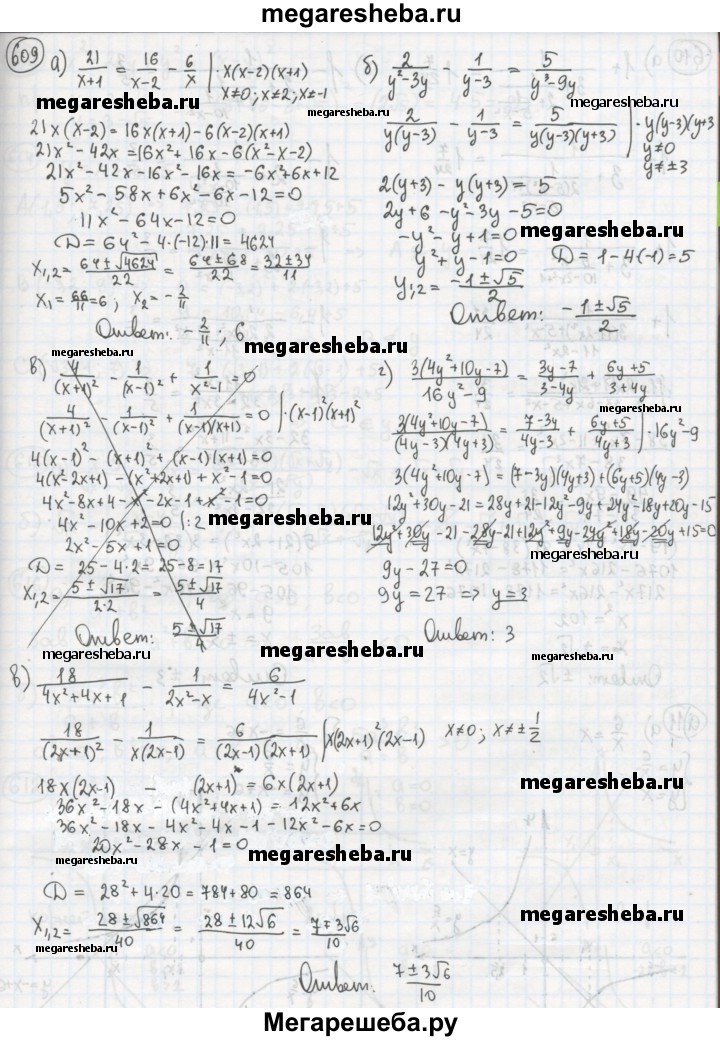 megaresheba.ru
609 а) 21/(x+1) = 16/(x-2) - 6/x | · x(x-2)(x+1)
x≠0; x≠2; x≠-1
megaresheba.ru
21x(x-2) = 16x(x+1) - 6(x-2)(x+1)
21x² - 42x = 16x² + 16x - 6(x²-x-2)
21x² - 42x - 16x² - 16x = -6x² + 6x + 12
5x² - 58x + 6x² - 6x - 12 = 0
11x² - 64x - 12 = 0
D = 64² - 4·(-12)·11 = 4624
x₁,₂ = (64 ± √4624)/22 = (64 ± 68)/22 = (32 ± 34)/11
x₁ = 66/11 = 6; x₂ = -2/11
Ответ: -2/11; 6
megaresheba.ru
б) 2/(y²-3y) - 1/(y-3) = 5/(y³-9y)
megaresheba.ru
2/(y(y-3)) - 1/(y-3) = 5/(y(y-3)(y+3)) | · y(y-3)(y+3)
y≠0
y≠±3
2(y+3) - y(y+3) = 5
2y + 6 - y² - 3y - 5 = 0
-y² - y + 1 = 0
megaresheba.ru
y² + y - 1 = 0 D = 1 - 4(-1) = 5
y₁,₂ = (-1 ± √5)/2
Ответ: (-1 ± √5)/2
в) 4/(x+1)² - 1/(x-1)² + 1/(x²-1) = 0
megaresheba.ru
4/(x+1)² - 1/(x-1)² + 1/((x-1)(x+1)) = 0 | · (x-1)²(x+1)²
4(x-1)² - (x+1) + (x-1)(x+1) = 0
4(x²-2x+1) - (x²+2x+1) + x² - 1 = 0
4x² - 8x + 4 - x² - 2x - 1 + x² - 1 = 0
4x² - 10x + 2 = 0 | : 2
megaresheba.ru
2x² - 5x + 1 = 0
D = 25 - 4·2 = 25 - 8 = 17
x₁,₂ = (5 ± √17)/(2·2) = (5 ± √17)/4
Ответ: (5 ± √17)/4
megaresheba.ru
г) 3(4y²+10y-7)/(16y²-9) = (3y-7)/(3-4y) + (6y+5)/(3+4y)
megaresheba.ru
3(4y²+10y-7)/((4y-3)(4y+3)) = (7-3y)/(4y-3) + (6y+5)/(4y+3) | · 16y²-9
3(4y²+10y-7) = (7-3y)(4y+3) + (6y+5)(4y-3)
12y²+30y-21 = 28y+21-12y²-9y+24y²-18y+20y-15
12y²+30y-21-28y-21+12y²+9y-24y²+18y-20y+15=0
megaresheba.ru
9y - 27 = 0
9y = 27 => y = 3
Ответ: 3
megaresheba.ru
megaresheba.ru
в) 18/(4x²+4x+1) - 1/(2x²-x) = 6/(4x²-1)
18/(2x+1)² - 1/(x(2x-1)) = 6/((2x-1)(2x+1)) | x(2x+1)²(2x-1) x≠0; x≠±1/2
megaresheba.ru
18x(2x-1) - (2x+1) = 6x(2x+1)
36x² - 18x - (4x²+4x+1) = 12x² + 6x
36x² - 18x - 4x² - 4x - 1 - 12x² - 6x = 0
20x² - 28x - 1 = 0
megaresheba.ru
megaresheba.ru
D = 28² + 4·20 = 784 + 80 = 864
x₁,₂ = (28 ± √864)/40 = (28 ± 12√6)/40 = (7 ± 3√6)/10
megaresheba.ru
megaresheba.ru
Ответ: (7 ± 3√6)/10
Мегарешеба.ру